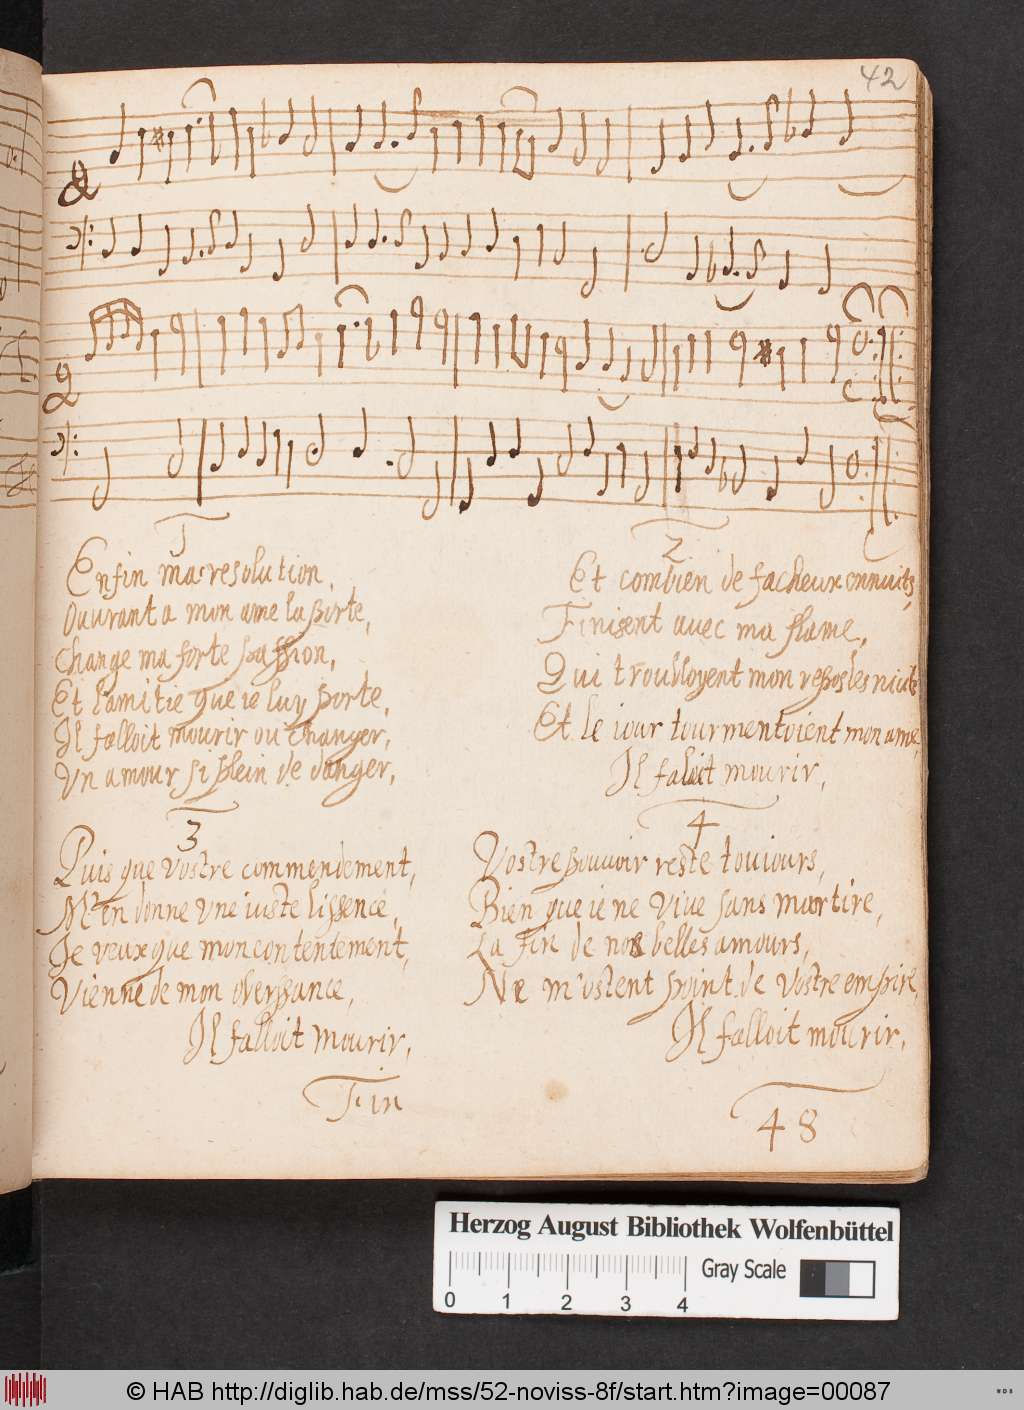 42
1
Enfin ma resolution,
Ouurant a mon ame la porte,
Change ma forte passion,
Et lamitie que ie luy porte,
Il falloit mourir ou changer,
Vn amour si plein de danger,
2
Et combien de facheux ennuits,
Finisent auec ma flame,
Qui troubloyent mon repos les nuits
Et le iour tourmentoient mon ame,
Il faloit mourir,
3
Puis que vostre commendement,
M'en donne vne iuste lissence,
Je veux que mon contentement,
Vienne de mon obeissance,
Il falloit mourir,
4
Vostre pouuoir reste touiours,
Bien que ie ne viue sans martire,
La fin de nos belles amours,
Ne m'ostent point de vostre empire,
Il falloit mourir,
Fin
48
Herzog August Bibliothek Wolfenbüttel
Gray Scale
0 1 2 3 4
© HAB http://diglib.hab.de/mss/52-noviss-8f/start.htm?image=00087